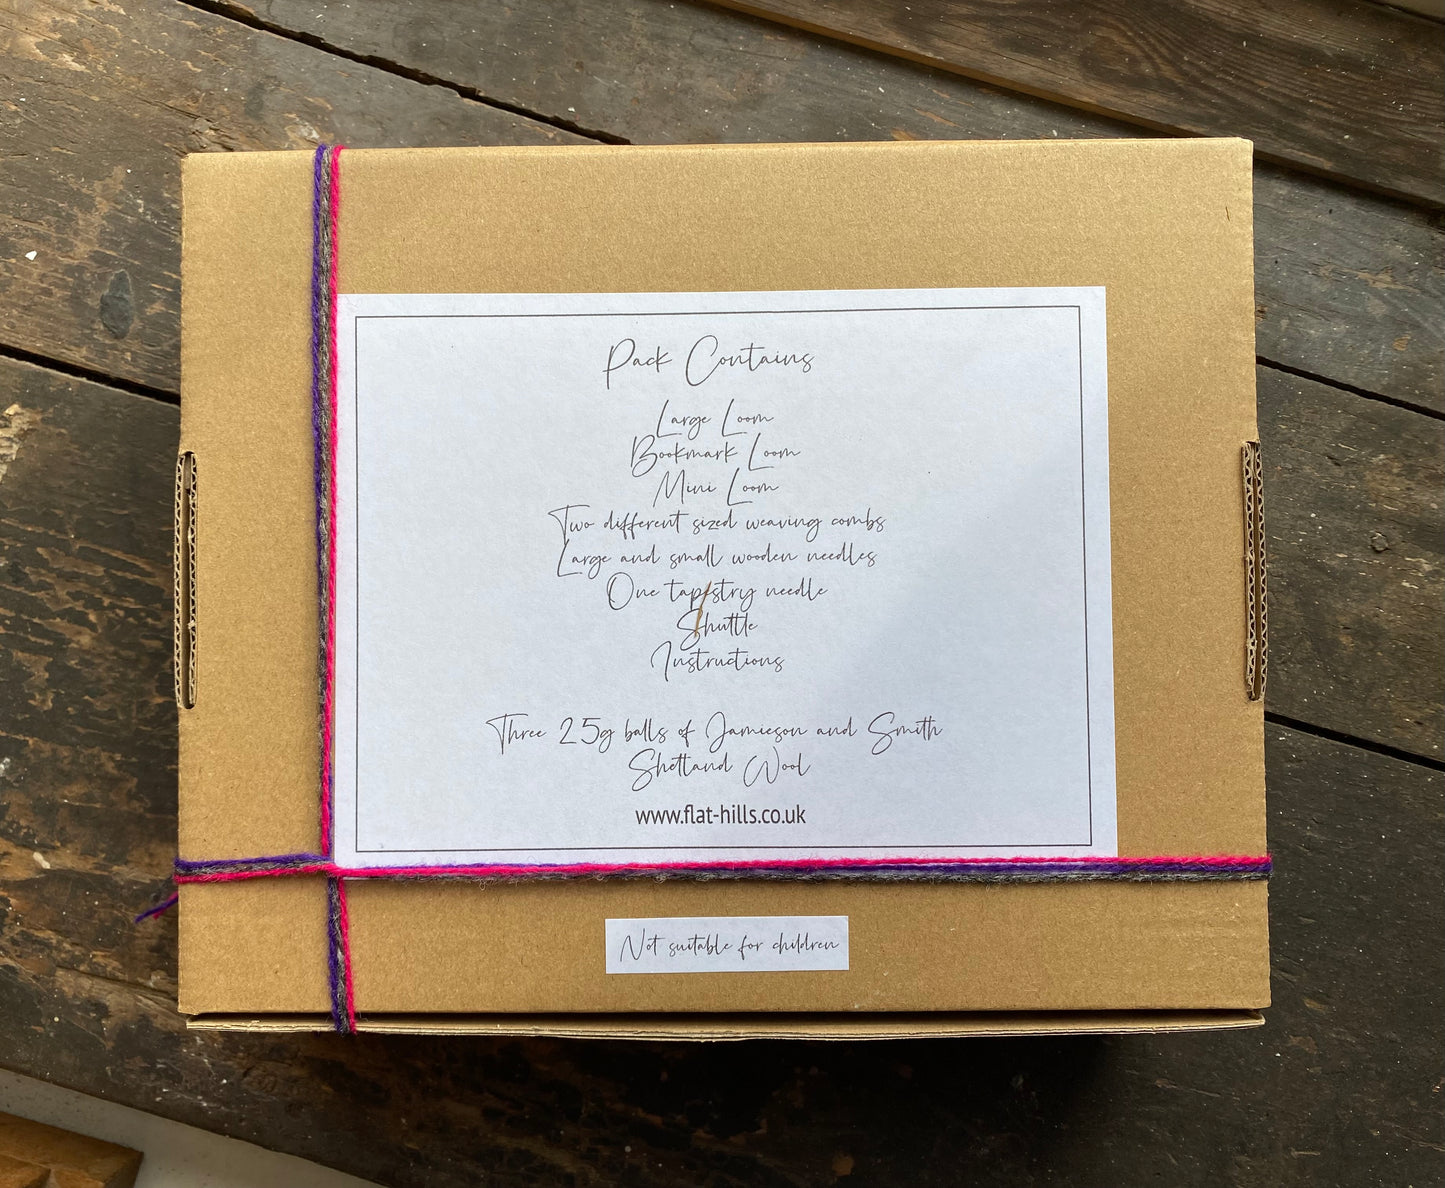 Pack Contains
Large Loom
Bookmark Loom
Mini Loom
Two different sized weaving combs
Large and small wooden needles
One tapestry needle
Shuttle
Instructions
Three 25g balls of Jamieson and Smith
Shetland Wool
www.flat-hills.co.uk
Not suitable for children